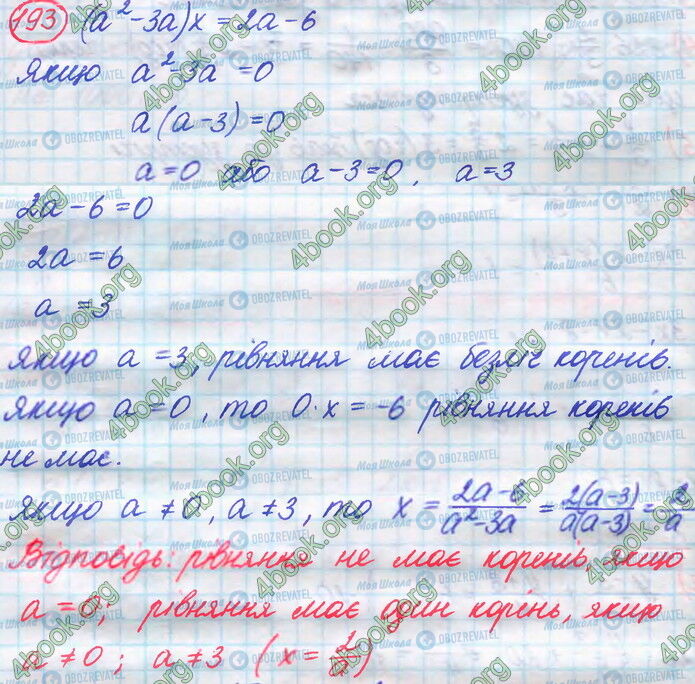 193 (a²-3a)x = 2a-6
Якщо a²-3a=0
a(a-3)=0
a=0 або a-3=0, a=3
2a-6=0
2a=6
a=3
Якщо a=3, рівняння має безліч коренів.
Якщо a=0, то 0·x=-6 рівняння коренів
не має.
Якщо a≠0, a≠3, то x = (2a-6)/(a²-3a) = 2(a-3)/a(a-3) = 2/a
Відповідь: рівняння не має коренів, якщо
a=0; рівняння має один корінь, якщо
a≠0; a≠3 (x=2/a)